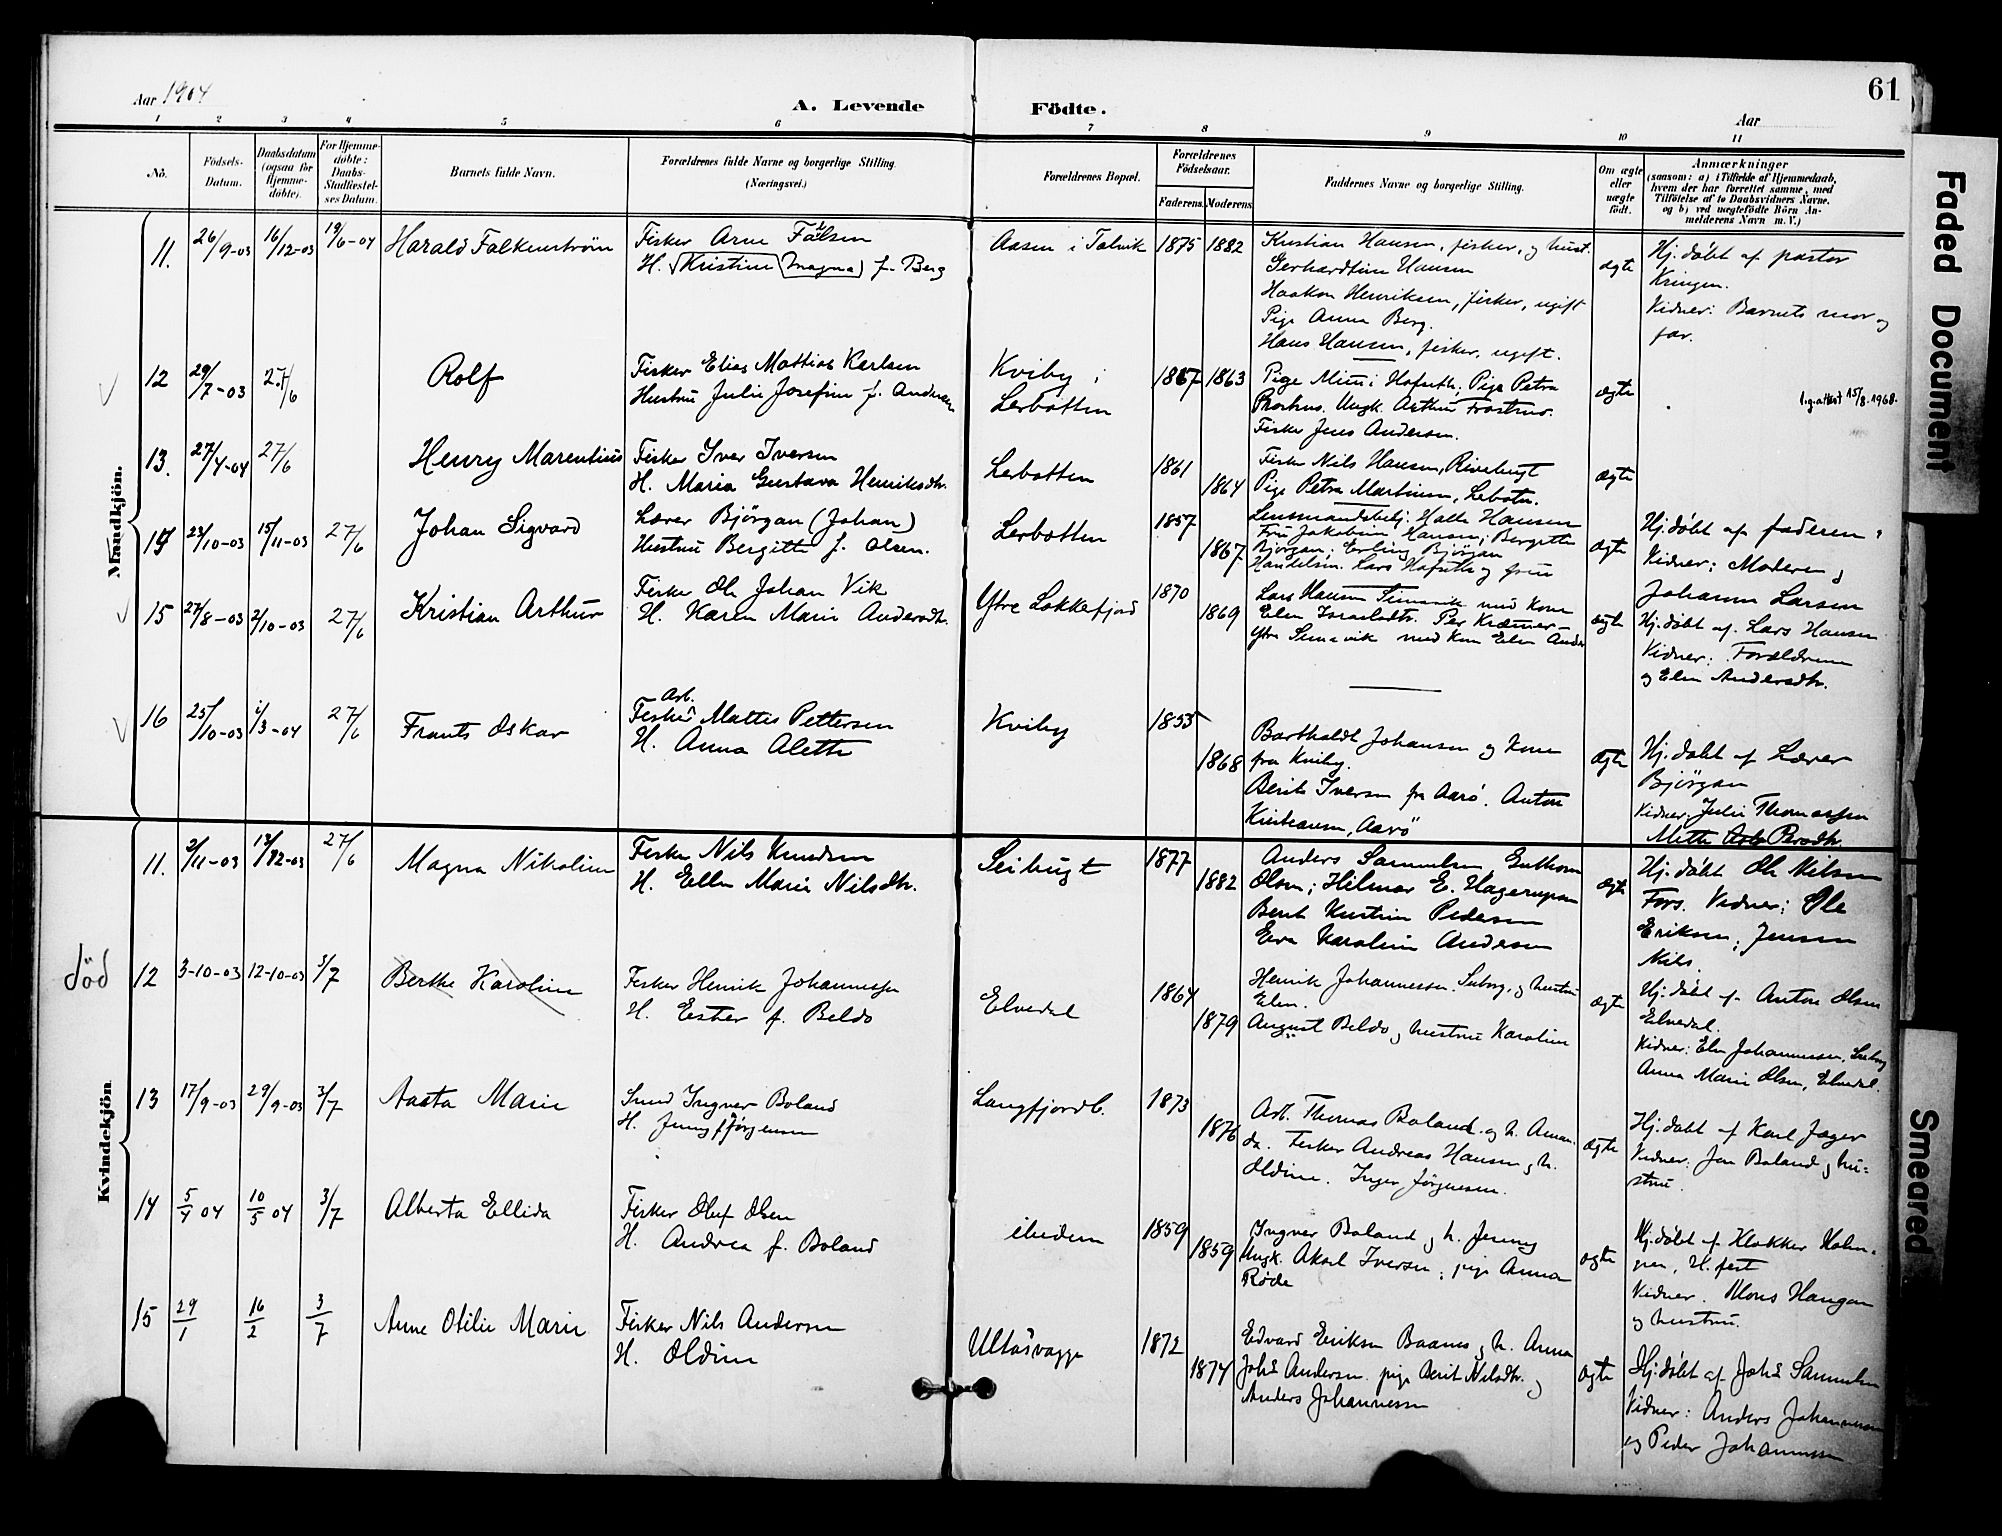 Aar 1904
A. Levende Födte.
Aar
61
1 2 3 4 5 6 7 8 9 10 11
No.
Födsels-Datum.
Daabsdatum (ogsaa for Hjemme-döbte).
For Hjemme-döbte: Daabs-Stadfæstel-ses Datum.
Barnets fulde Navn.
Forældrenes fulde Navne og borgerlige Stilling.
(Næringsvei.)
Forældrenes Bopæl.
Forældrenes Födselsaar.
Faderens. Moderens.
Faddernes Navne og borgerlige Stilling.
Om ægte eller uægte födt.
Anmærkninger
(saasom: a) i Tilfælde af Hjemmedaab, hvem der har forrettet samme, med Tilföielse af to Daabsvidners Navne, og b) ved uægtefödte Börn An-melderens Navn m. V.)
Mandkjön.
11. 26/9-03 16/12-03 19/6-04 Harald Falkenstrøm
Fisker Arne Falsen
H. Kristine Magna f. Berg
Aasen i Talvik 1875 1882
Kristian Hansen, fisker, og hust.
Gerhardtine Hansen
Haakon Henriksen, fisker, ugift
Pige Anna Berg.
Hans Hansen, fisker, ugift.
ægte
Hj. døbt af pastor
Kringen.
Vidner: Barnets mor og
far.
12 29/7-03 27/6 Rolf
Fisker Elias Mattias Karlsen
Hustru Julie Josefine f. Andersen
Kviby i
Lerbotten
1867 1863
Pige Mimi Hofseth; Pige Petra
Ungk. Arthur
Fisker Jens Andersen.
ægte
lig.attest 15/8.1968.
13. 27/4-04 27/6 Henry Marentius
Fisker Iver Iversen
H. Maria Gustava Henriksdtr.
Lerbotten 1861 1864
Fisker Nils Hansen, Rivebugt
Pige Petra Martinsen, Lebotn.
ægte
14 23/10-03 15/11-03 27/6 Johan Sigvard
Lærer Björgan (Johan)
Hustru Bergitte f. Olsen.
Lerbotten 1857 1867
Lensmandsbetj. Halle Hansen
Fru Jakobine Hansen; Bergitte
Björgan; Erling Björgan
Handelsm. Lars Hofseth og frue
ægte
Hj. døbt af faderen.
Vidner: Moderen og
Johanne Larsen
15 27/8-03 2/10-03 27/6 Kristian Arthur
Fisker Ole Johan Vik
H. Karen Marie Andersdtr.
Ytre Lokkefjord 1870 1869
Lars Hansen Simavik med kone
Elen Israelsdtr. Per Kræmer
Ytre Simavik med kone Elen Anders
ægte
Hj. døbt af Lars Hansen
Vidner: Forældrene
og Elen Andersdtr.
16 25/10-03 1/3-04 27/6 Frants Oskar
Arb.
Fisker Mattis Pettersen
H. Anna Alette
Kviby 1855 1868
Bartholdt Johansen og kone
fra Kviby.
Berit Iversen fr Aarö. Anton
Kristiansen, Aarö
ægte
Hj. døbt af Lærer
Björgan
Vidner. Julie Thomassen
Mette
Kvindekjön.
11. 2/11-03 13/12-03 27/6 Magna Nikoline
Fisker Nils Knudsen
H. Ellen Marie Nilsdtr.
Seibugt 1877 1882
Anders Samuelsen Guttorm
Olsen; Hilmar E. Hagerupsen
Berit Kristine Pedersen
Eva Karoline Andersen
ægte
Hj. døbt Ole Nilsen
Fors. Vidner: Ole
Eriksen; Jensen
Nils.
død
12 3-10-03 12-10-03 3/7 Berthe Karoline
Fisker Henrik Johannessen
H. Ester f. Beldo
Elvedal 1864 1879
Henrik Johannessen. og hustru
Elen.
August Beldo og hustru Karoline
ægte
Hj. døbt af Anton Olsen
Elvedal.
Vidner: Elen Johannessen,
Anna Marie Olsen, Elvedal.
13 17/9-03 29/9-03 3/7 Aasta Marie
Smed Ingver Boland
H. Jenny f. Jørgensen
Langfjordb. 1873 1876
Arb. Thomas Boland og h. Aman-
da. Fisker Andreas Hansen og h.
Oldine. Inger Jörgensen.
ægte
Hj. døbt af Karl Jæger
Vidner: Jen Boland og hu-
stru.
14 5/4 04 10/5 04 3/7 Alberta Ellida
Fisker Oluf Olsen
H. Andrea f. Boland
ibidem 1859 1859
Ingver Boland og h. Jenny
Ungk. Aksel Iversen; pige Anna
Røde
ægte
Hj. døbt af Klokker Holm-
gren, H.fest
Vidner. Mons Haugan
og hustru.
15 29/1 16/2 3/7 Anne Otilie Marie
Fisker Nils Andersen
H. Oldine
Ultásvagge 1872 1874
Edvard Eriksen Baanes og h. Anna
Johs Andersen. pige Berit Nilsdtr. og
Anders Johannessen
ægte
Hj. døbt af Johs Samuelsen
Vidner: Anders Johannessen
og Peder Johannessen
Faded Document
Smeared